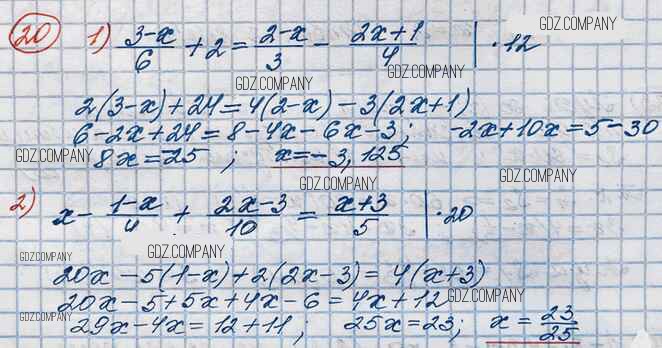 GDZ.COMPANY
20 1) (3-x)/6 + 2 = (2-x)/3 - (2x+1)/4 | ·12
GDZ.COMPANY
GDZ.COMPANY
2(3-x)+24=4(2-x)-3(2x+1)
6-2x+24=8-4x-6x-3; -2x+10x=5-30
GDZ.COMPANY 8x=-25; x=-3,125
GDZ.COMPANY
GDZ.COMPANY
2) x - (1-x)/4 + (2x-3)/10 = (x+3)/5 | ·20
GDZ.COMPANY
GDZ.COMPANY
20x-5(1-x)+2(2x-3)=4(x+3)
20x-5+5x+4x-6=4x+12 GDZ.COMPANY
GDZ.COMPANY 29x-4x=12+11; 25x=23; x=23/25